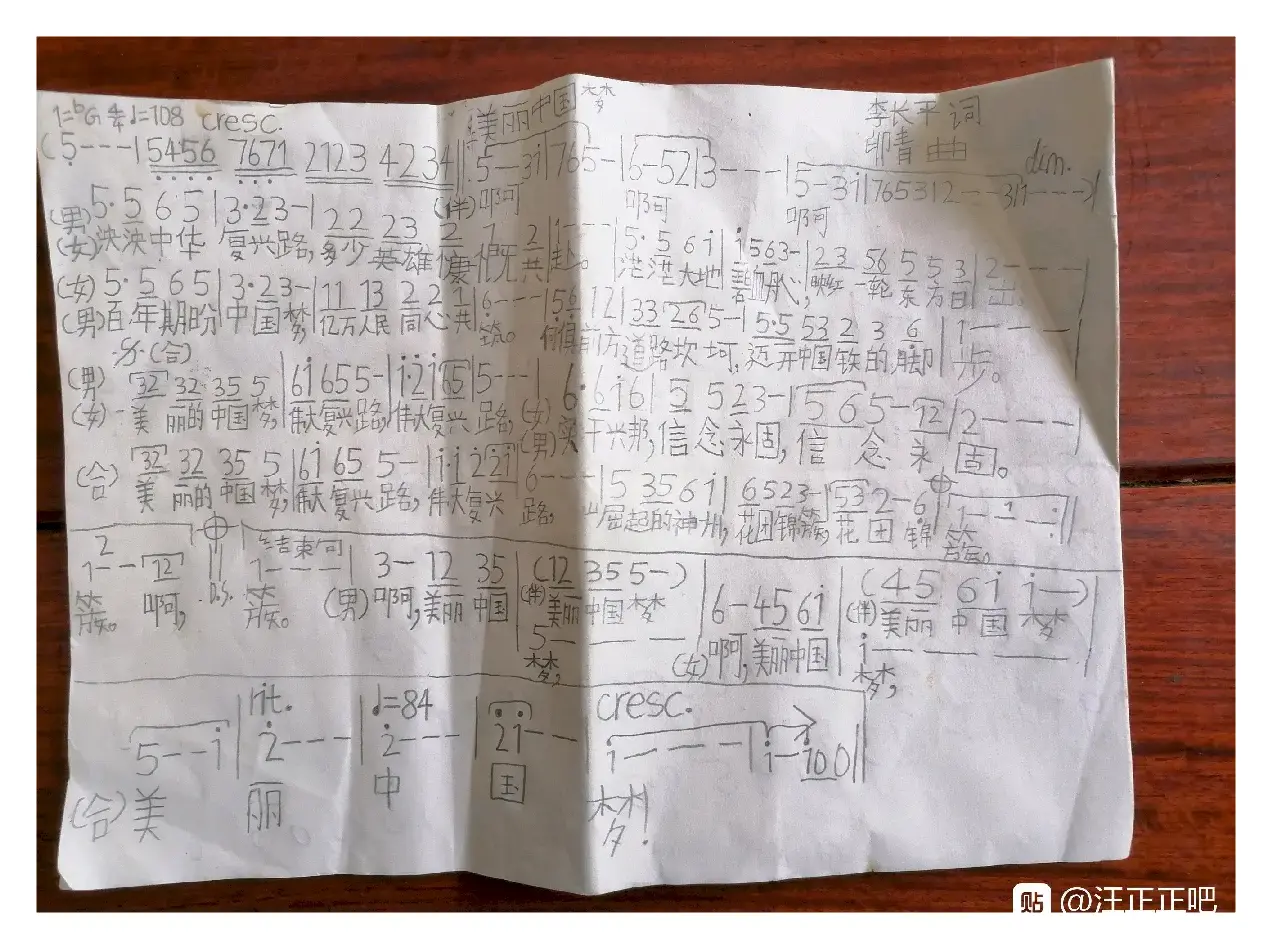 1=ᵇG 4/4 ♩=108 cresc. 美丽中国梦 李长平 词
印青 曲
(5--- | 5456 7671 2123 4234 ‖: 5--3i | 765- | 6-52 | 3--- | 5-3i | 765312---3 | 1---) dim.
(伴)啊 啊 啊
(男) 5·5 65 | 3·23- | 22 23 2 1 2 | 1--- | 5·5 6i | i563- | 23 56 5 5 3 | 2---|
(女) 泱泱中华 复兴路,多少英雄慷慨共赴。茫茫大地 碧血丹心,映红一轮东方日出。
(女) 5·5 65 | 3·23- | 11 13 2 2 1 | 6--- | 56 12 | 33 26 5- | 5·5 53 2 3 6 | 1---|
(男) 百年期盼 中国梦,亿万人民同心共筑。何惧前方道路坎坷,迈开中国铁的脚步。
𝄋(合)
(男) 32 32 35 5 | 6i 655- | i·2i65 | 5--- | (女) 6·6i6 | 5 523- | 565-12 | 2---|
(女) 美丽的中国梦,伟大复兴路,伟大复兴路, (男) 实干兴邦,信念永固,信念永固。
(合) 32 32 35 5 | 6i 65 5- | i·i 22i | 6--- | 5 3561 | 6523- | 532-6 | 1--1-:‖
美丽的中国梦,伟大复兴路,伟大复兴路,崛起的神州,花团锦簇,花团锦簇。
2 结束句
1--12 ‖ 1--- | 3-12 35 | (12 355-) | 6-45 6i | (45 6i i-) |
簇。 啊, D.S. 簇。 (男)啊,美丽中国 (伴)美丽中国梦 (女)啊,美丽中国 (伴)美丽中国梦
5--- i---
梦, 梦,
rit. ♩=84 cresc.
5--i | 2--- | 2--- | 2i-- | i--- | i-i00 ‖
(合)美 丽 中 国 梦!
贴 @汪正正吧